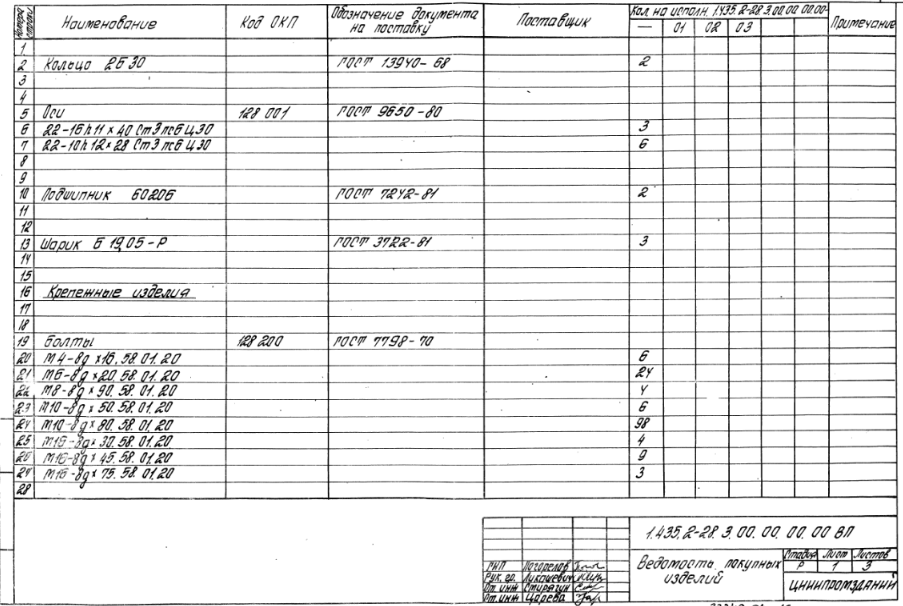 Наименование Код ОКП Обозначение документа на поставку Поставщик Кол. на исполн. 1.435.2-28.3.00.00.00.00- Примечание
— 01 02 03
1
2 Кольцо 2Б 30 ГОСТ 13940-68 2
3
4
5 Оси 128 001 ГОСТ 9650-80
6 22-16h11×40 Ст3пс6 Ц30 3
7 22-10h12×28 Ст3пс6 Ц30 6
8
9
10 Подшипник 60206 ГОСТ 7242-81 2
11
12
13 Шарик Б 19,05-Р ГОСТ 3722-81 3
14
15
16 Крепежные изделия
17
18
19 Болты 128 200 ГОСТ 7798-70
20 М4-8g×16.58.01.20 6
21 М6-8g×20.58.01.20 24
22 М8-8g×90.58.01.20 4
23 М10-8g×50.58.01.20 6
24 М10-8g×80.58.01.20 98
25 М16-8g×30.58.01.20 4
26 М16-8g×45.58.01.20 9
27 М16-8g×75.58.01.20 3
28
1.435.2-28.3.00.00.00.00 ВП
Ведомость покупных изделий
Стадия Лист Листов
Р 1 3
ЦНИИПРОМЗДАНИЙ
ГИП Погорелов
Рук. гр. Лукашевич
От. инж Спирягин
От. инж Царева